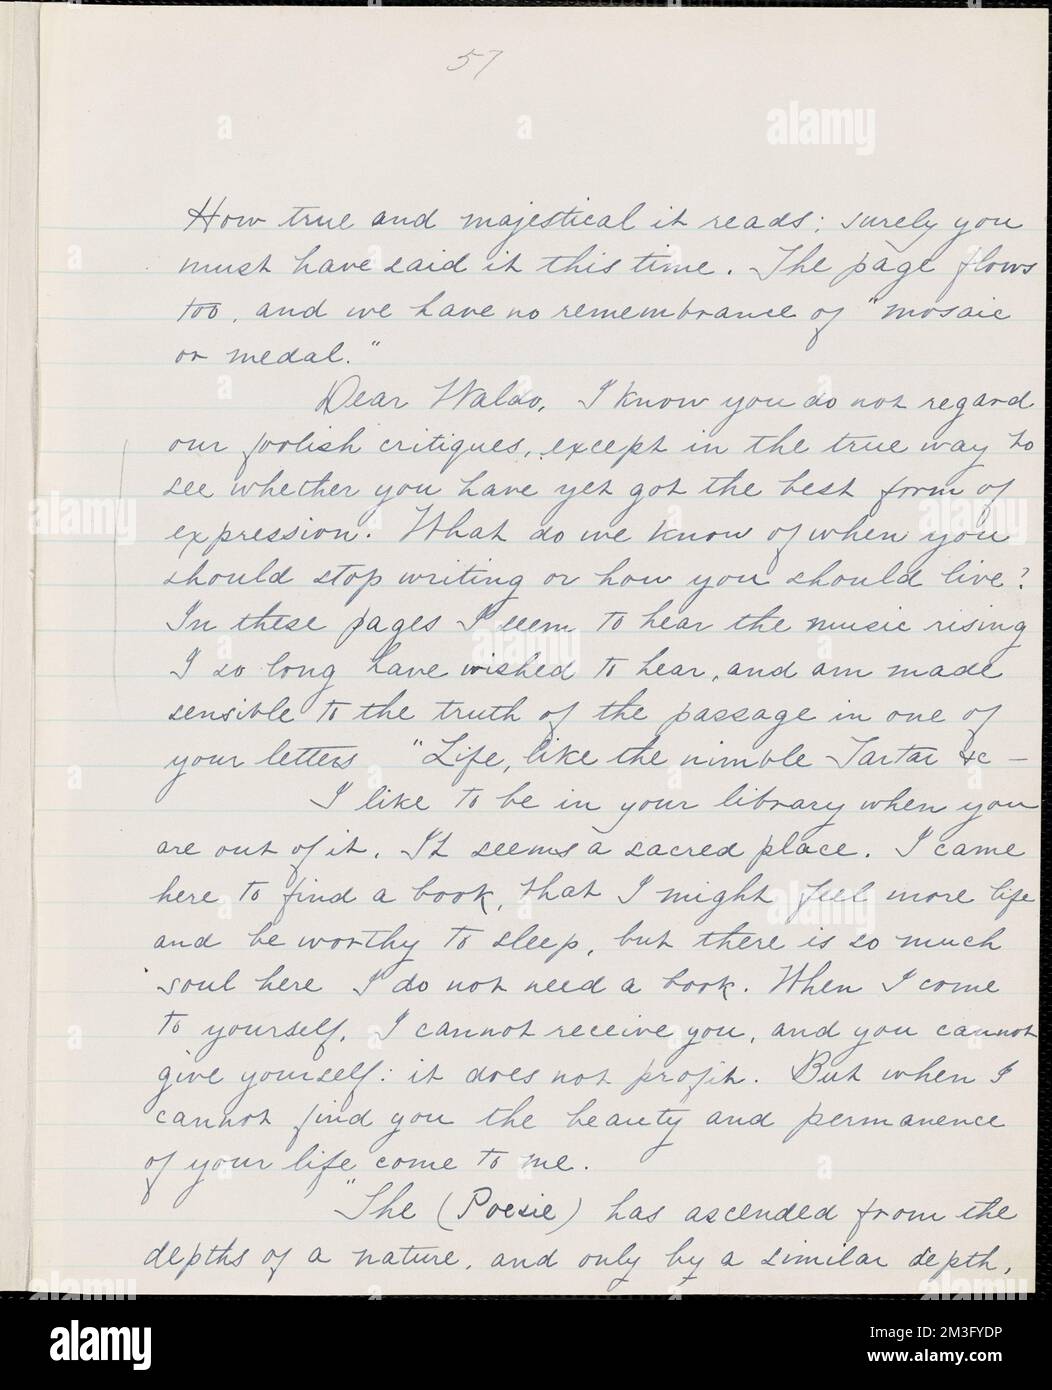 57
How true and majestical it reads; surely you
must have said it this time. The page flows
too, and we have no remembrance of "mosaic
or medal."
Dear Waldo, I know you do not regard
our foolish critiques, except in the true way to
see whether you have yet got the best form of
expression. What do we know of when you
should stop writing or how you should live?
In these pages I seem to hear the music rising
I so long have wished to hear, and am made
sensible to the truth of the passage in one of
your letters "Life, like the nimble Tartar &c —
I like to be in your library when you
are out of it. It seems a sacred place. I came
here to find a book, that I might feel more life
and be worthy to sleep, but there is so much
soul here I do not need a book. When I come
to yourself, I cannot receive you, and you cannot
give yourself: it does not profit. But when I
cannot find you the beauty and permanence
of your life come to me.
"She (Poesie) has ascended from the
depths of a nature, and only by a similar depth,
alamy
Image ID: 2M3FYDP
www.alamy.com